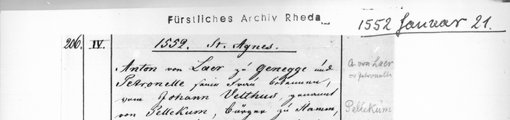 Fürstliches Archiv Rheda
1552 Januar 21.
206. IV. 1552. St. Agnes.
Anton von Laer zu Genegge und
Petronelle seine Frau bekennen,
vom Johann Velthus, genannt
von Pellekum, Bürger zu Hamm,
A von Laer
Petronelle
Pellekum